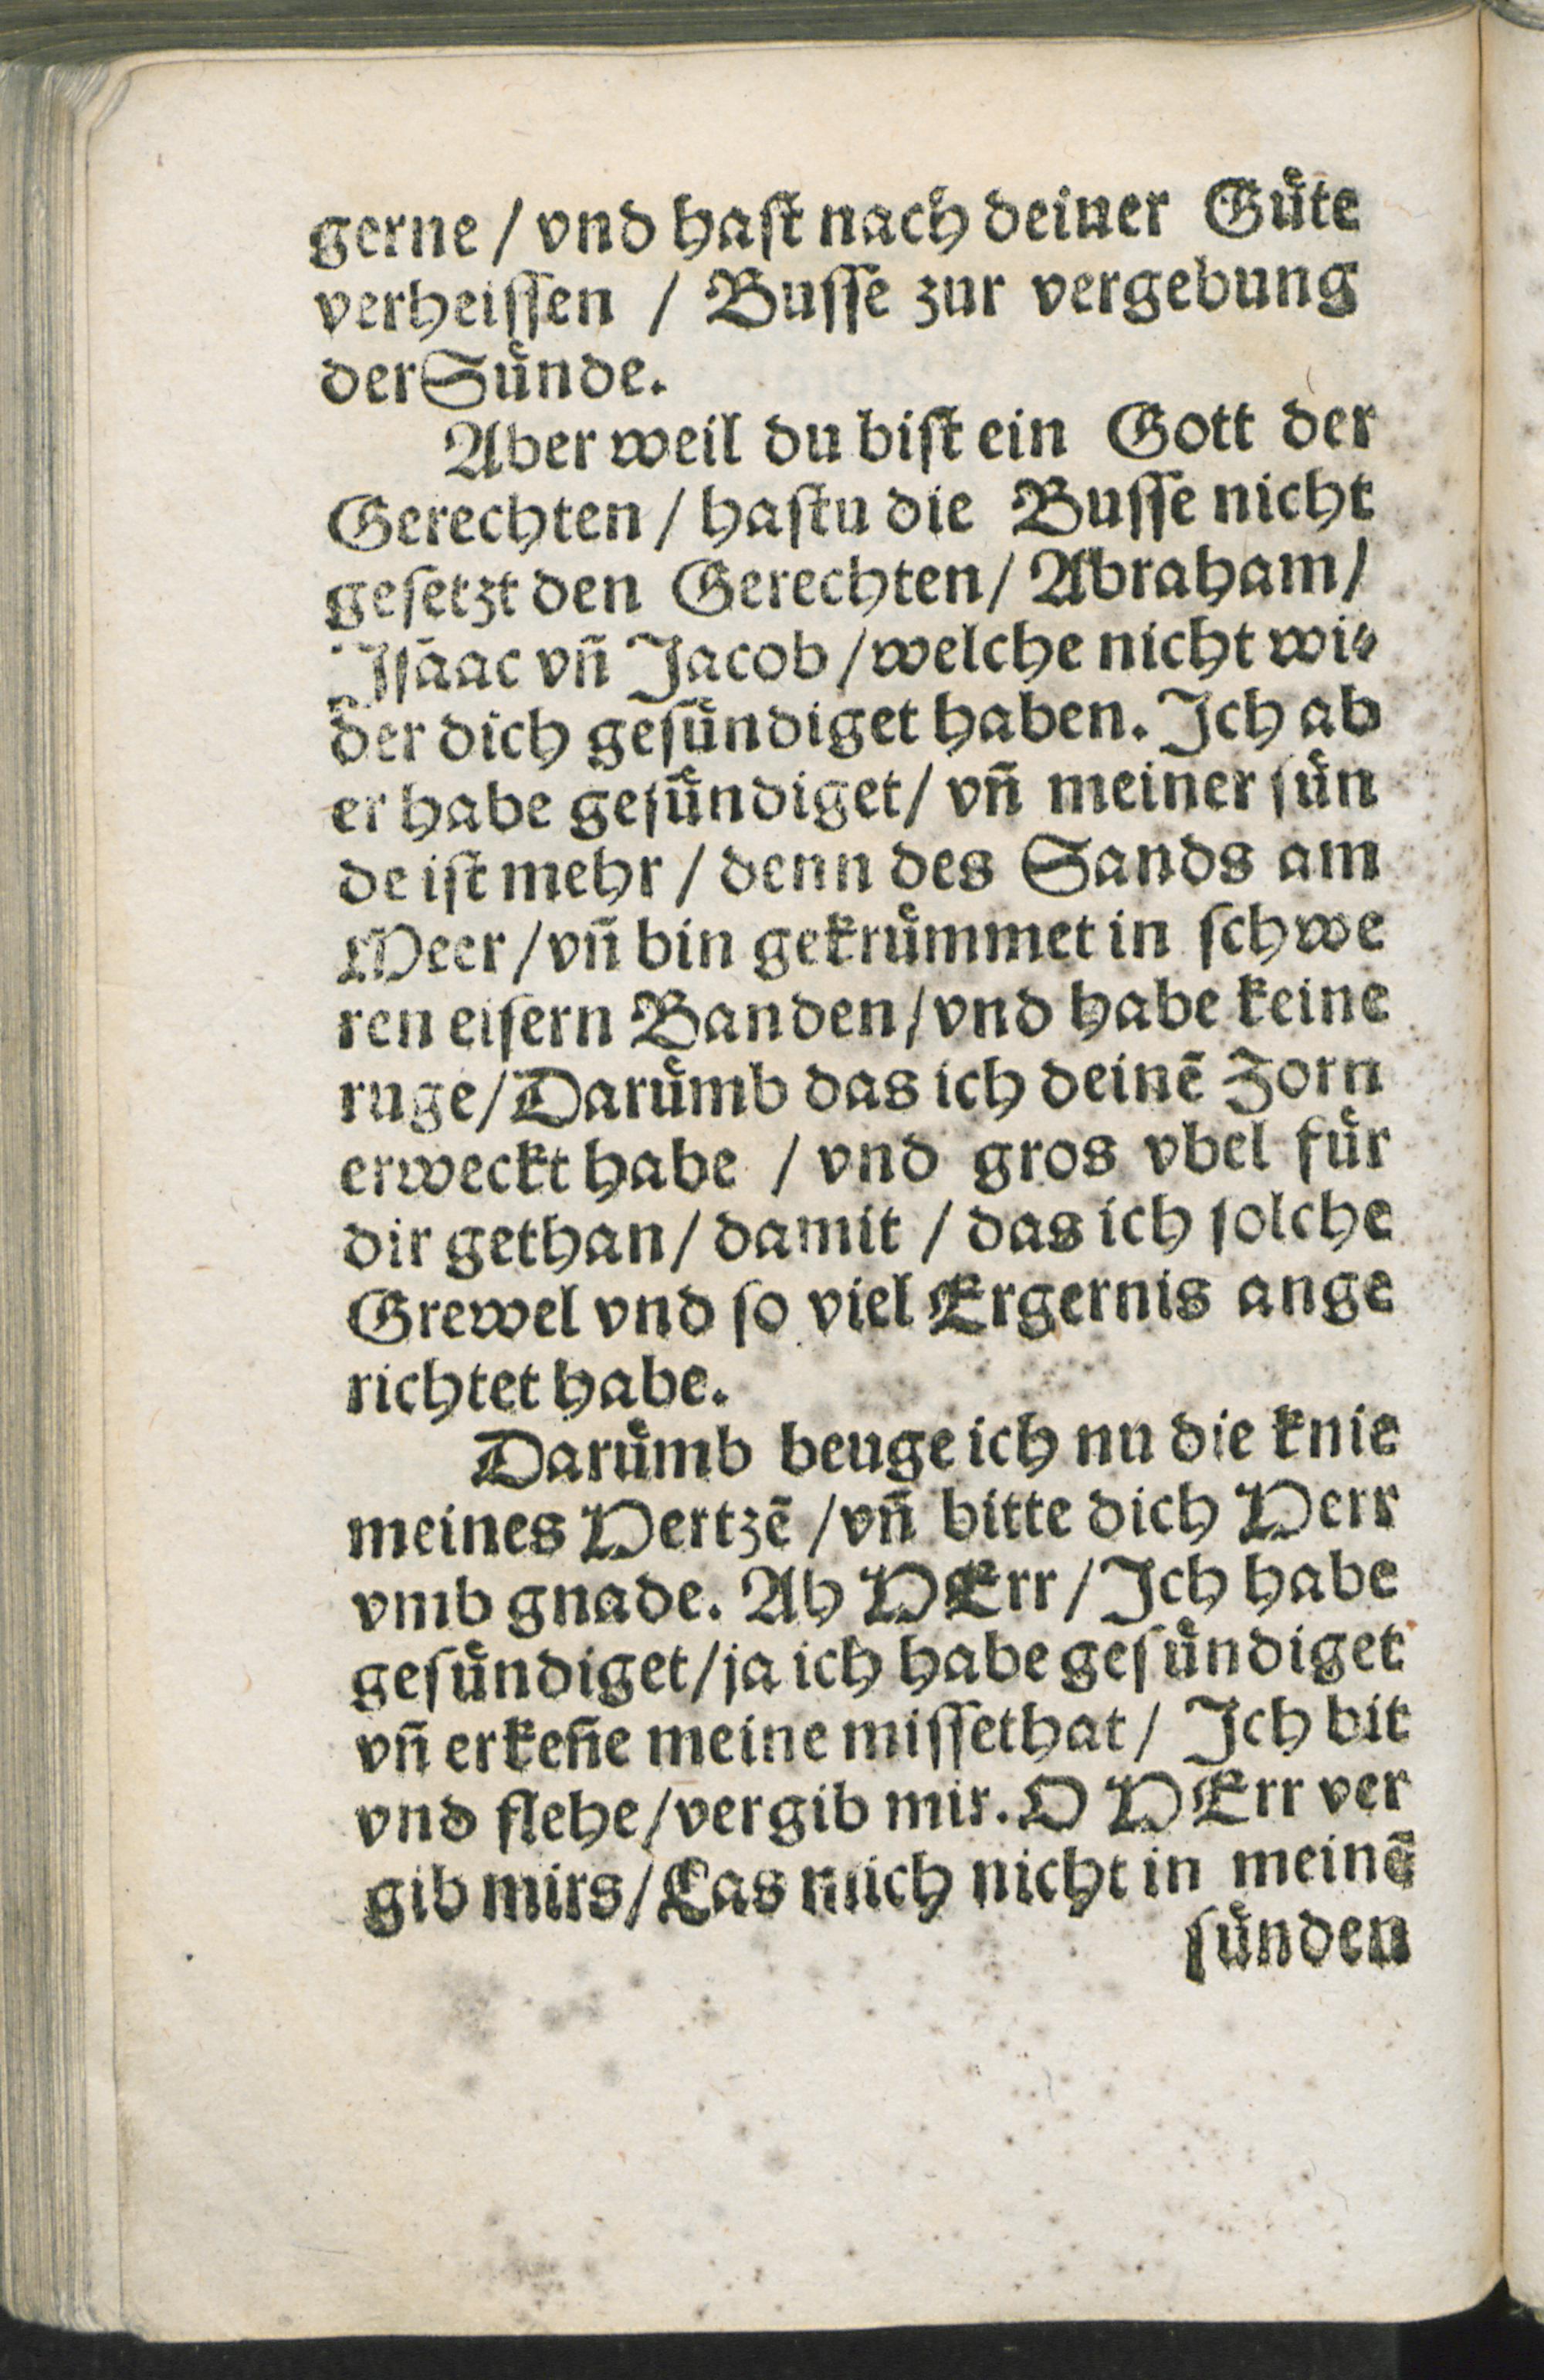 gerne / vnd haſt nach deiner Guͤte
verheiſſen / Buſſe zur vergebung
der Suͤnde.
Aber weil du biſt ein Gott der
Gerechten / haſtu die Buſſe nicht
geſetzt den Gerechten / Abraham /
Iſaac vñ Jacob / welche nicht wi⸗
der dich geſuͤndiget haben. Ich ab
er habe geſuͤndiget / vñ meiner ſuͤn
de iſt mehr / denn des Sands am
Meer / vñ bin gekruͤmmet in ſchwe
ren eiſern Banden / vnd habe keine
ruge / Daruͤmb das ich deinẽ Zorn
erweckt habe / vnd gros vbel fuͤr
dir gethan / damit / das ich ſolche
Grewel vnd ſo viel Ergernis ange
richtet habe.
Daruͤmb beuge ich nu die knie
meines Hertzẽ / vñ bitte dich Herr
vmb gnade. Ah HErr / Ich habe
geſuͤndiget / ja ich habe geſuͤndiget
vñ erkeñe meine miſſethat / Ich bit
vnd flehe / vergib mir. O HErr ver
gib mirs / Las mich nicht in meinẽ
ſuͤnden